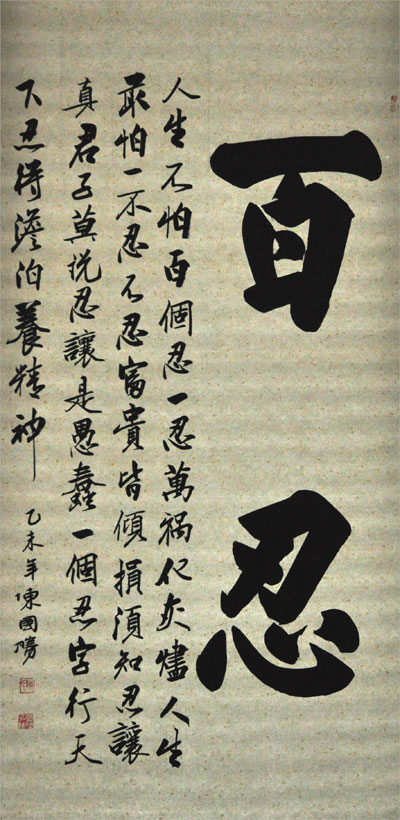 百忍
人生不怕百個忍一忍萬禍化灰燼人生
最怕一不忍不忍富貴皆傾損須知忍讓
真君子莫說忍讓是愚蠢一個忍字行天
下忍得澹泊養精神
乙未年陳國勝